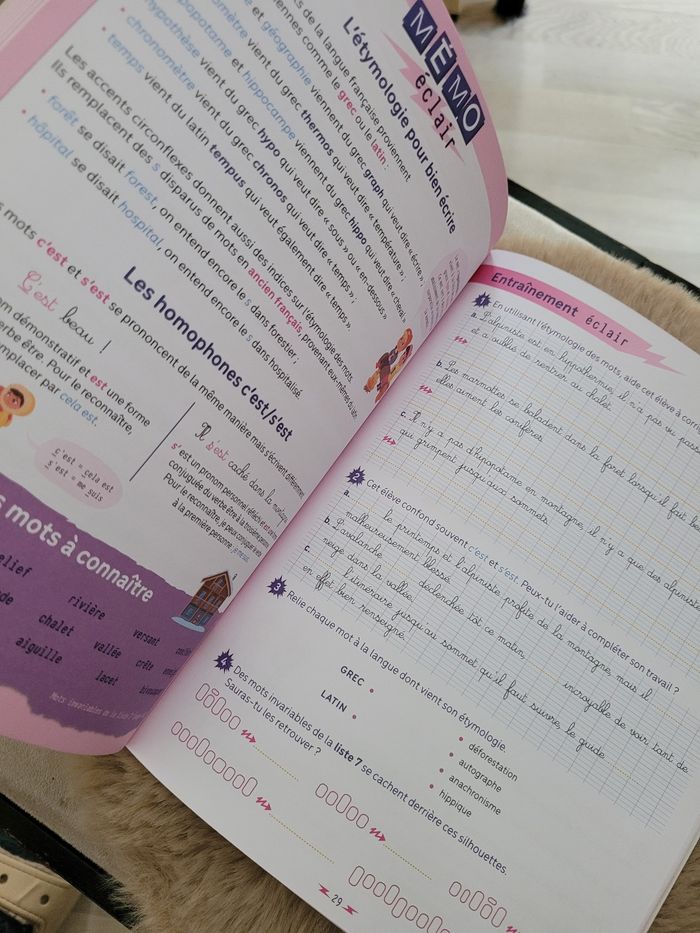 MÉMO
éclair
L'étymologie pour bien écrire
ts de la langue française proviennent
iennes comme le grec ou le latin :
et géographie viennent du grec graph qui veut dire « écrire »,
mètre vient du grec thermos qui veut dire « température » ;
popotame et hippocampe viennent du grec hippo qui veut dire « cheval »
othèse vient du grec hypo qui veut dire « sous » ou « en-dessous »
• chronomètre vient du grec chronos qui veut dire « temps » ;
• temps vient du latin tempus qui veut également dire « temps ».
Les accents circonflexes donnent aussi des indices sur l'étymologie des mots.
Ils remplacent des s disparus de mots en ancien français, provenant eux-mêmes du latin
• forêt se disait forest, on entend encore le s dans forestier ;
• hôpital se disait hospital, on entend encore le s dans hospitalisé.
Les homophones c'est/s'est
s mots c'est et s'est se prononcent de la même manière mais s'écrivent différemment
C'est beau !
om démonstratif et est une forme
erbe être. Pour le reconnaître,
mplacer par cela est.
c'est = cela est
s'est = me suis
Il s'est caché dans la montagne
s' est un pronom personnel réfléchi et est
conjuguée du verbe être à la troisième
Pour le reconnaître, je peux conjuguer
à la première personne : je me suis.
s mots à connaître
elief
rivière
versant
de
chalet
vallée
crêt
aiguille
lacet
Mots invariables de la liste 7
Entraînement éclair
1 En utilisant l'étymologie des mots, aide cet élève à corri
a. L'alpiniste est en hypothermie, il n'a pas vu passe
et a oublié de rentrer au chalet.
b. Les marmottes se baladent dans la foret lorsqu'il fait be
elles aiment les conifères.
c. Il n'y a pas d'hipopotame en montagne, il n'y a que des alpinist
qui grimpent jusqu'aux sommets.
2 Cet élève confond souvent c'est et s'est. Peux-tu l'aider à compléter son travail ?
a. le printemps et l'alpiniste profite de la montagne, mais il
malheureusement blessé.
b. L'avalanche déclenchée tôt ce matin, incroyable de voir tant de
neige dans la vallée.
c. l'itinéraire jusqu'au sommet qu'il faut suivre, le guide
en effet bien renseigné.
3 Relie chaque mot à la langue dont vient son étymologie.
GREC •
LATIN •
• déforestation
• autographe
• anachronisme
• hippique
4 Des mots invariables de la liste 7 se cachent derrière ces silhouettes.
Sauras-tu les retrouver ?
29